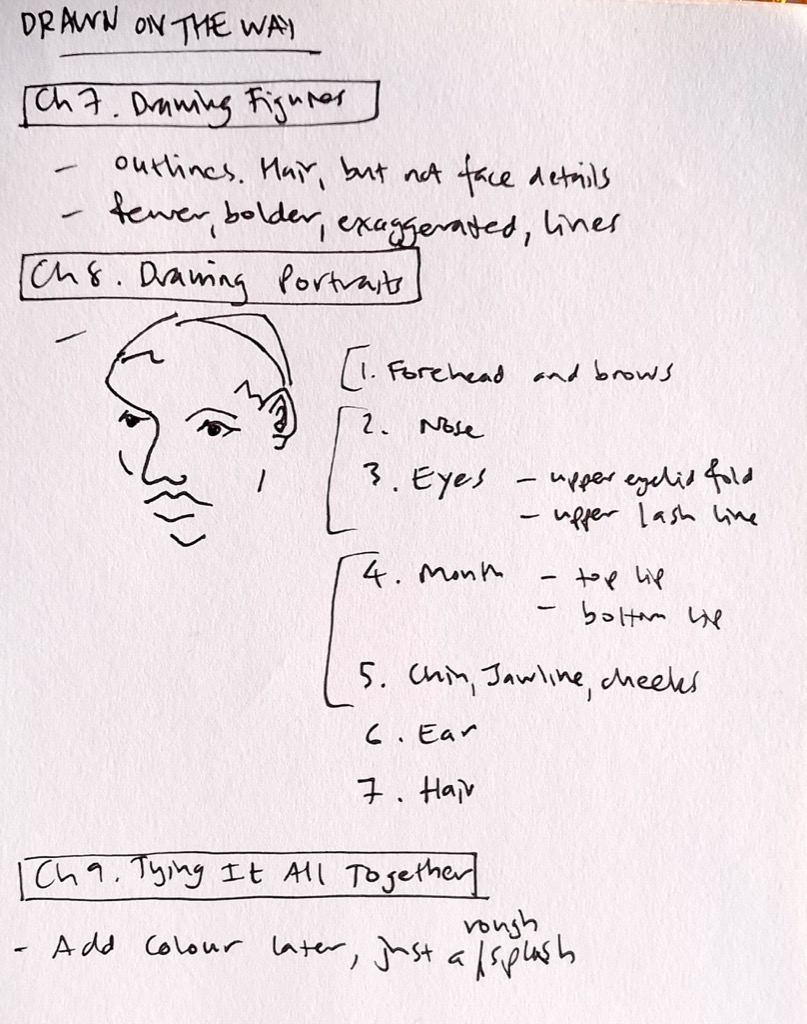 DRAWN ON THE WAY
Ch 7. Drawing Figures
- outlines. Hair, but not face details
- fewer, bolder, exaggerated, lines
Ch 8. Drawing Portraits
-
1. Forehead and brows
2. Nose
3. Eyes - upper eyelid fold
- upper lash line
4. Mouth - top lip
- bottom lip
5. Chin, Jawline, cheeks
6. Ear
7. Hair
Ch 9. Tying It All Together
- Add colour later, just a rough splash